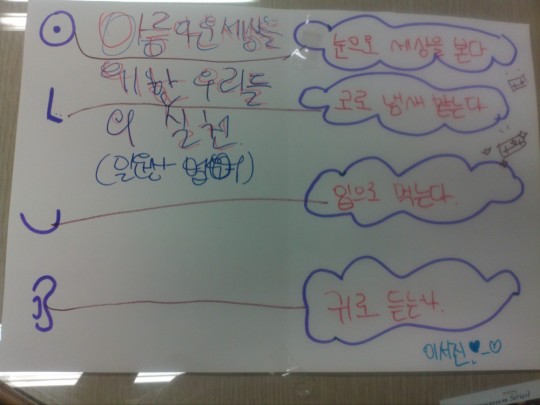 아름다운세상을
위한 우리들
의 실천
눈으로 세상을 본다
코로 냄새 맡는다
입으로 먹는다.
귀로 듣는다.
이서진